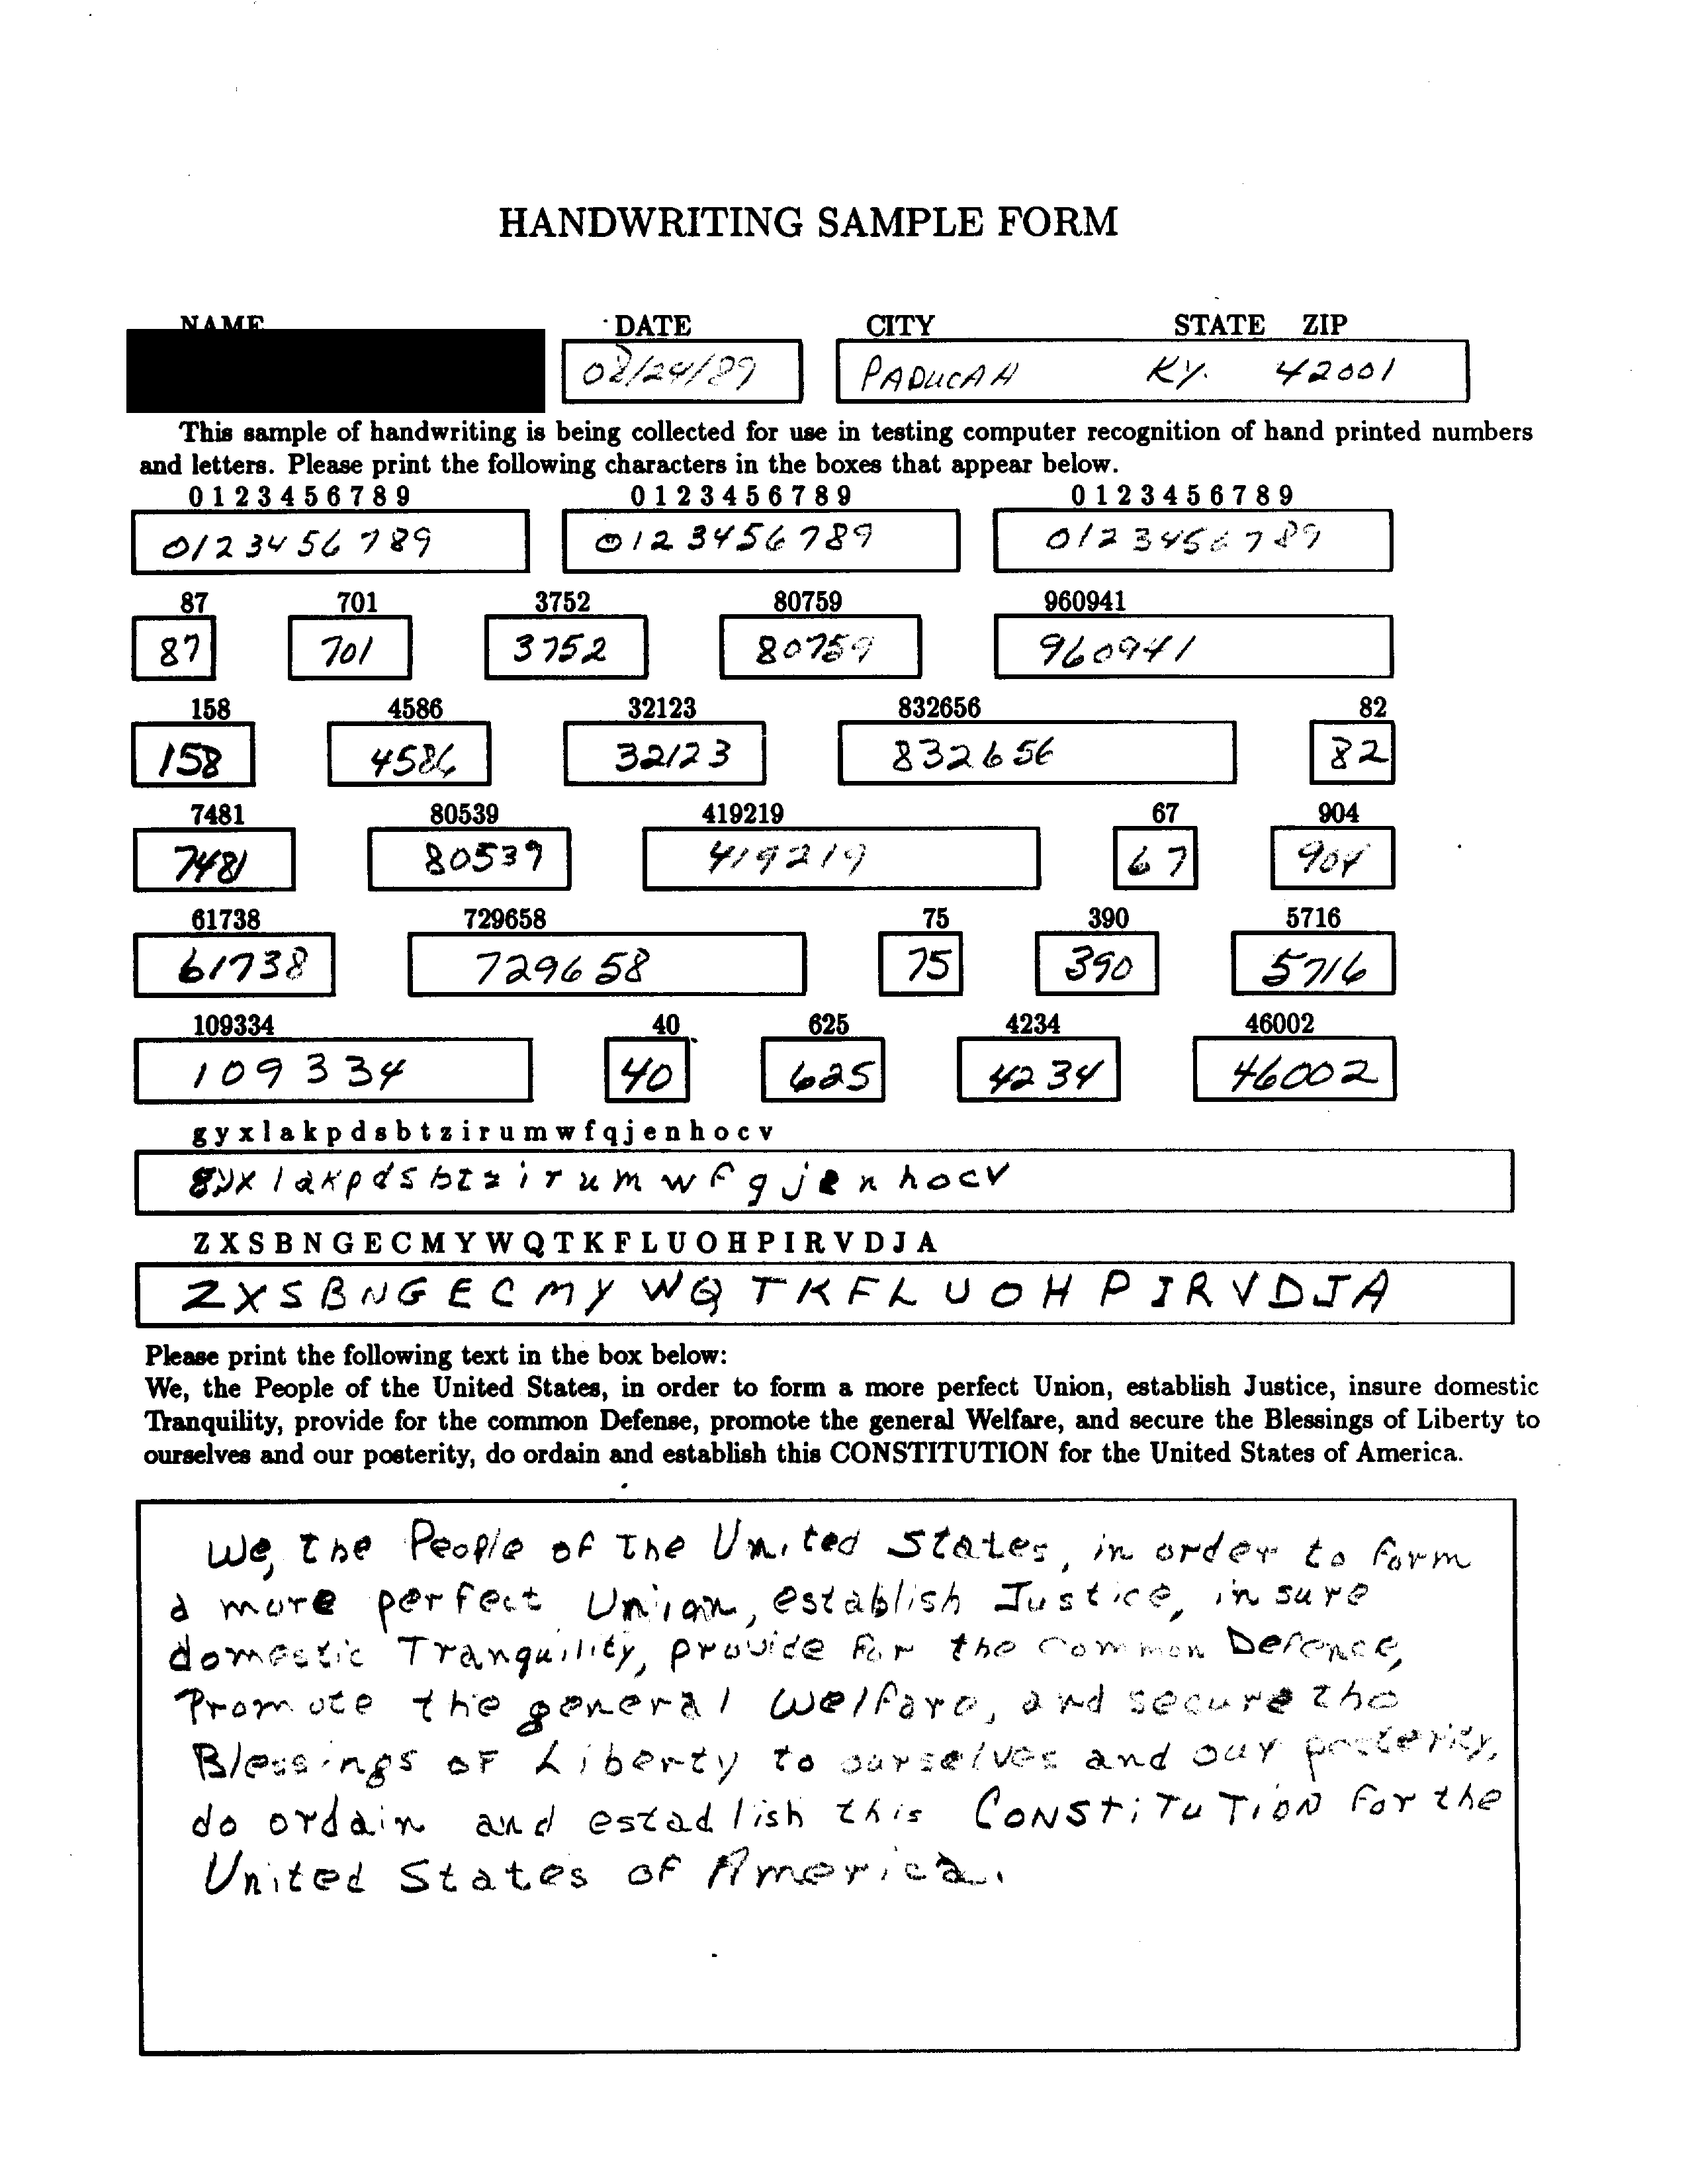 HANDWRITING SAMPLE FORM
NAME DATE CITY STATE ZIP
08/24/89 PADUCAH KY. 42001
This sample of handwriting is being collected for use in testing computer recognition of hand printed numbers
and letters. Please print the following characters in the boxes that appear below.
0 1 2 3 4 5 6 7 8 9 0 1 2 3 4 5 6 7 8 9 0 1 2 3 4 5 6 7 8 9
0123456789 0123456789 0123456789
87 701 3752 80759 960941
87 701 3752 80759 960941
158 4586 32123 832656 82
158 4586 32123 832656 82
7481 80539 419219 67 904
7481 80539 419219 67 904
61738 729658 75 390 5716
61738 729658 75 390 5716
109334 40 625 4234 46002
109334 40 625 4234 46002
g y x l a k p d s b t z i r u m w f q j e n h o c v
g y x l a k p d s b t z i r u m w f q j e n h o c v
Z X S B N G E C M Y W Q T K F L U O H P I R V D J A
Z X S B N G E C M Y W Q T K F L U O H P I R V D J A
Please print the following text in the box below:
We, the People of the United States, in order to form a more perfect Union, establish Justice, insure domestic
Tranquility, provide for the common Defense, promote the general Welfare, and secure the Blessings of Liberty to
ourselves and our posterity, do ordain and establish this CONSTITUTION for the United States of America.
We, the People of the United States, in order to form
a more perfect Union, establish Justice, insure
domestic Tranquility, provide for the common Defence,
Promote the general Welfare, and secure the
Blessings of Liberty to ourselves and our posterity,
do ordain and estadlish this CONSTiTuTiON for the
United States of America.